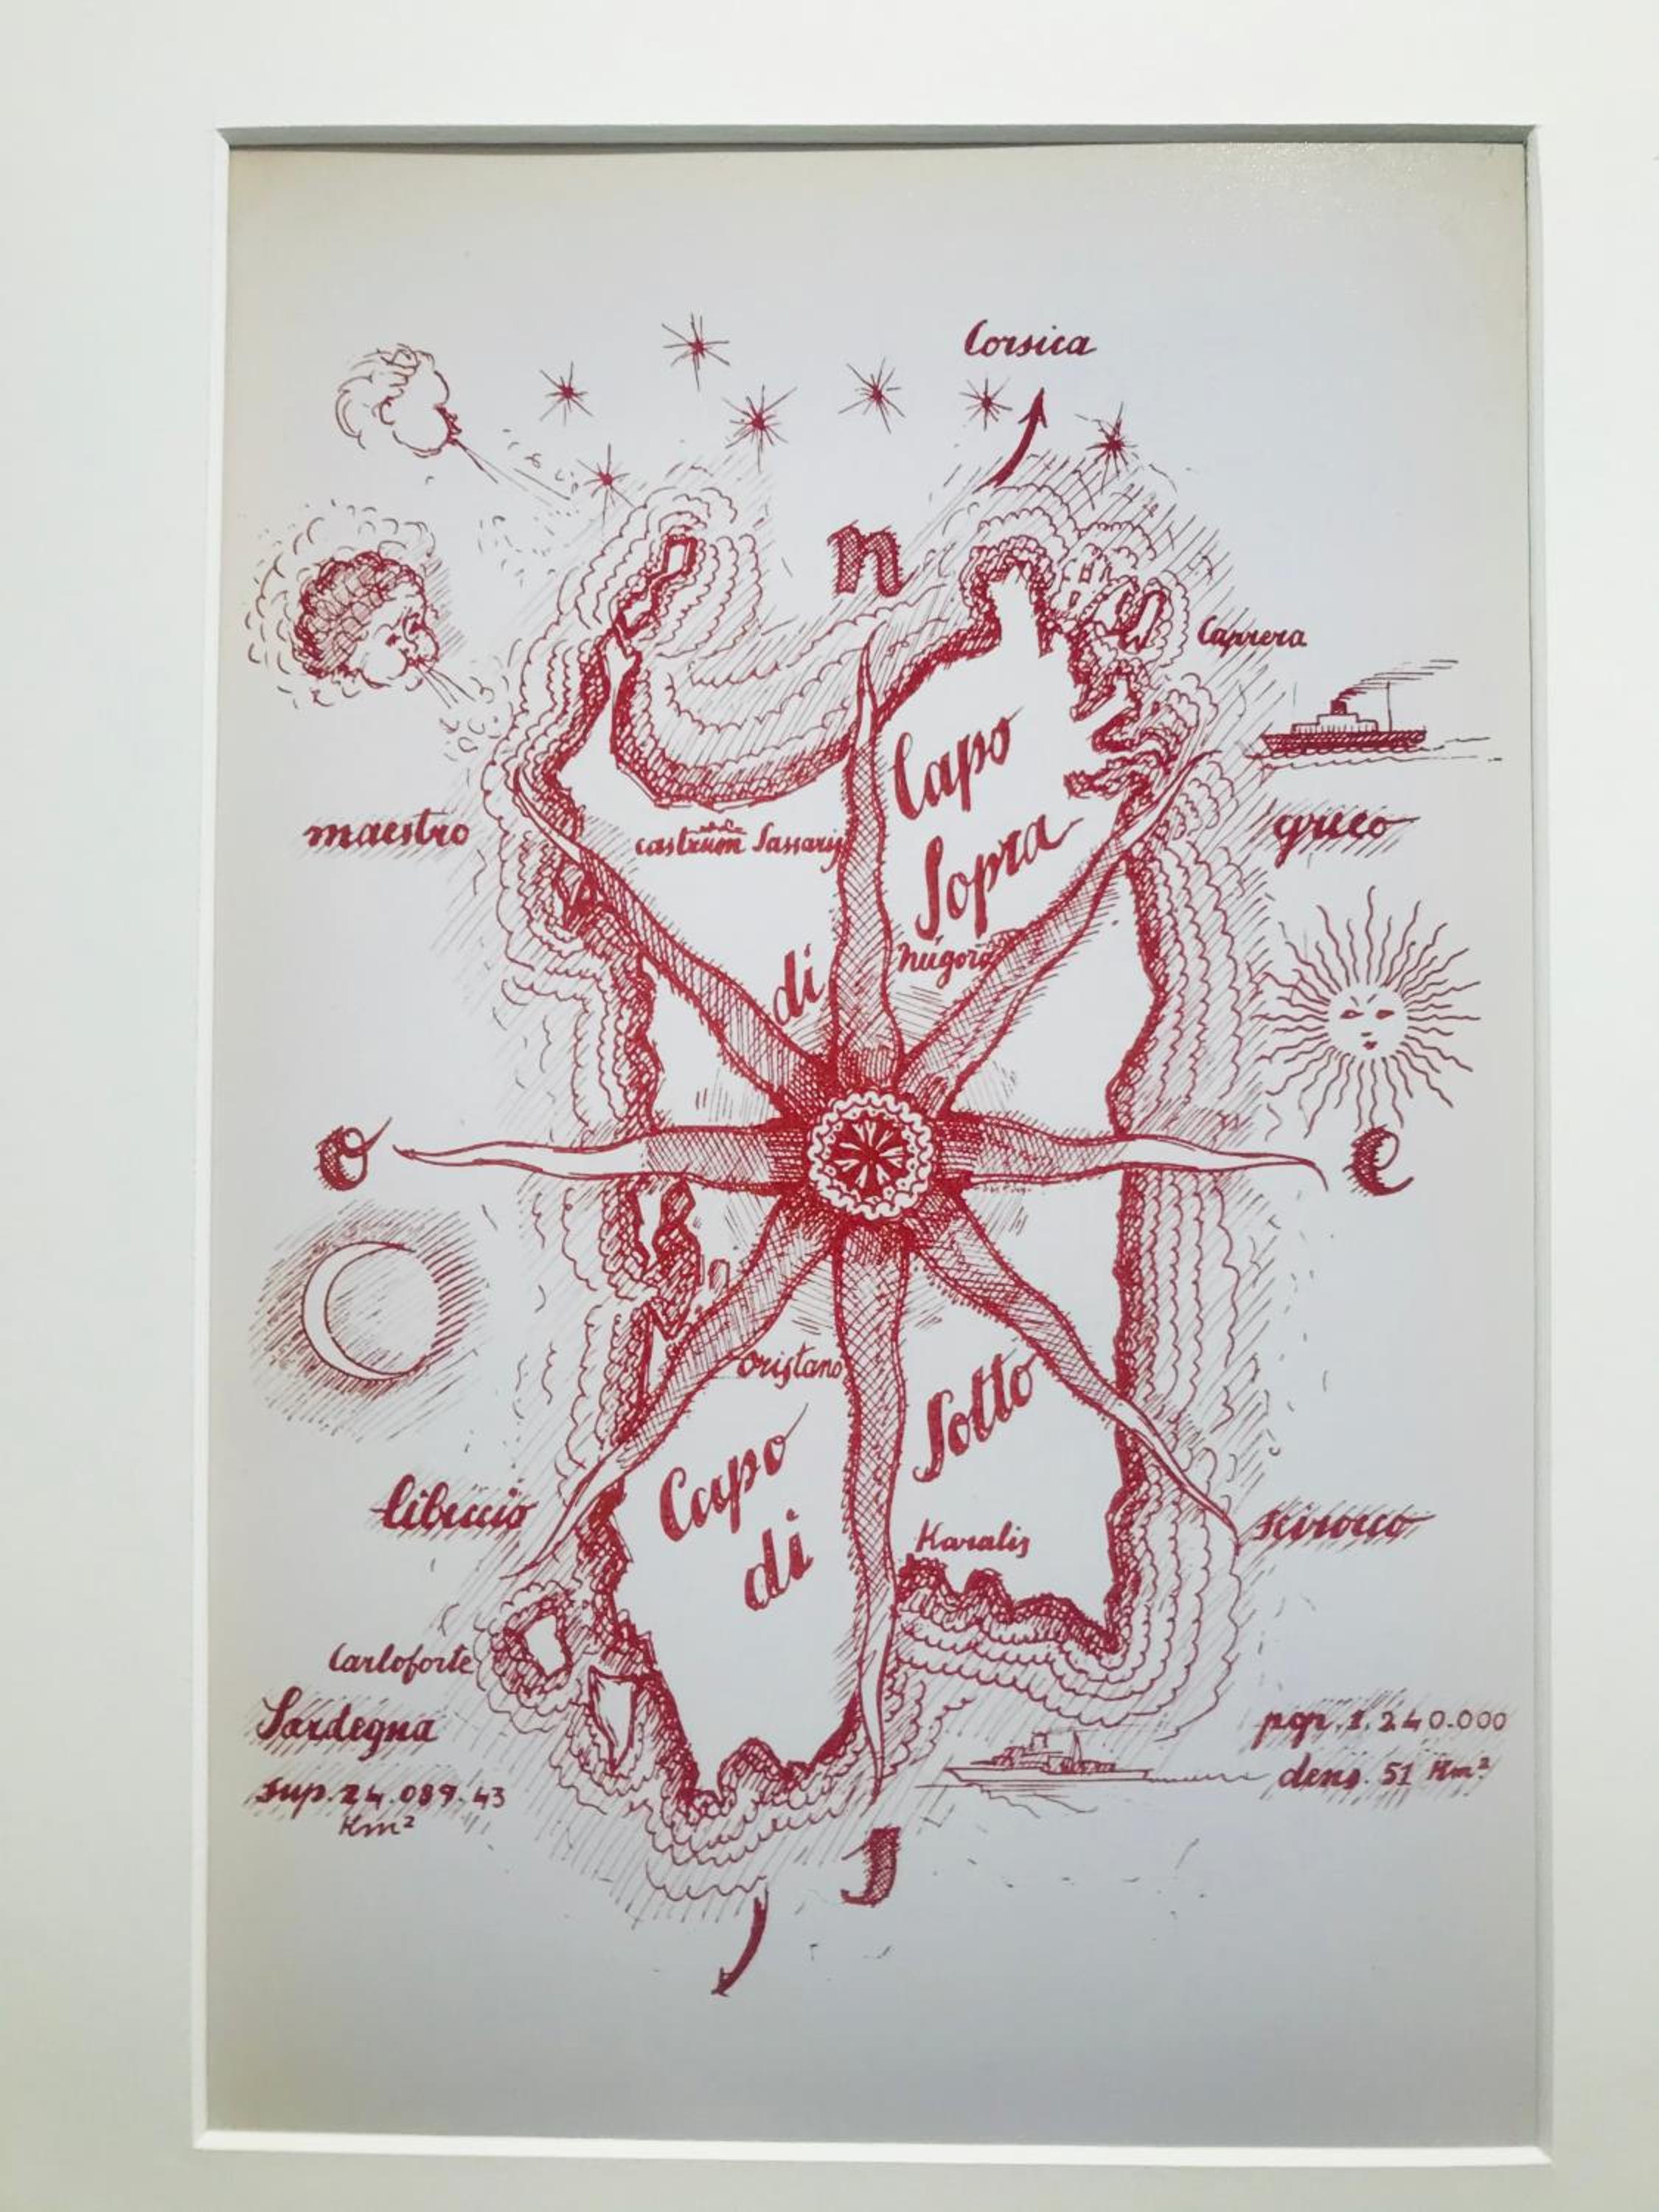 Corsica
n
Caprera
maestro
castrum Sassaris
Capo
di
Sopra
greco
Nugoro
o
e
Oristano
Capo
di
Sotto
Karalis
libeccio
scirocco
Carloforte
Sardegna
sup. 24.089.43
Km²
pop. 1.240.000
dens. 51 Km²
s